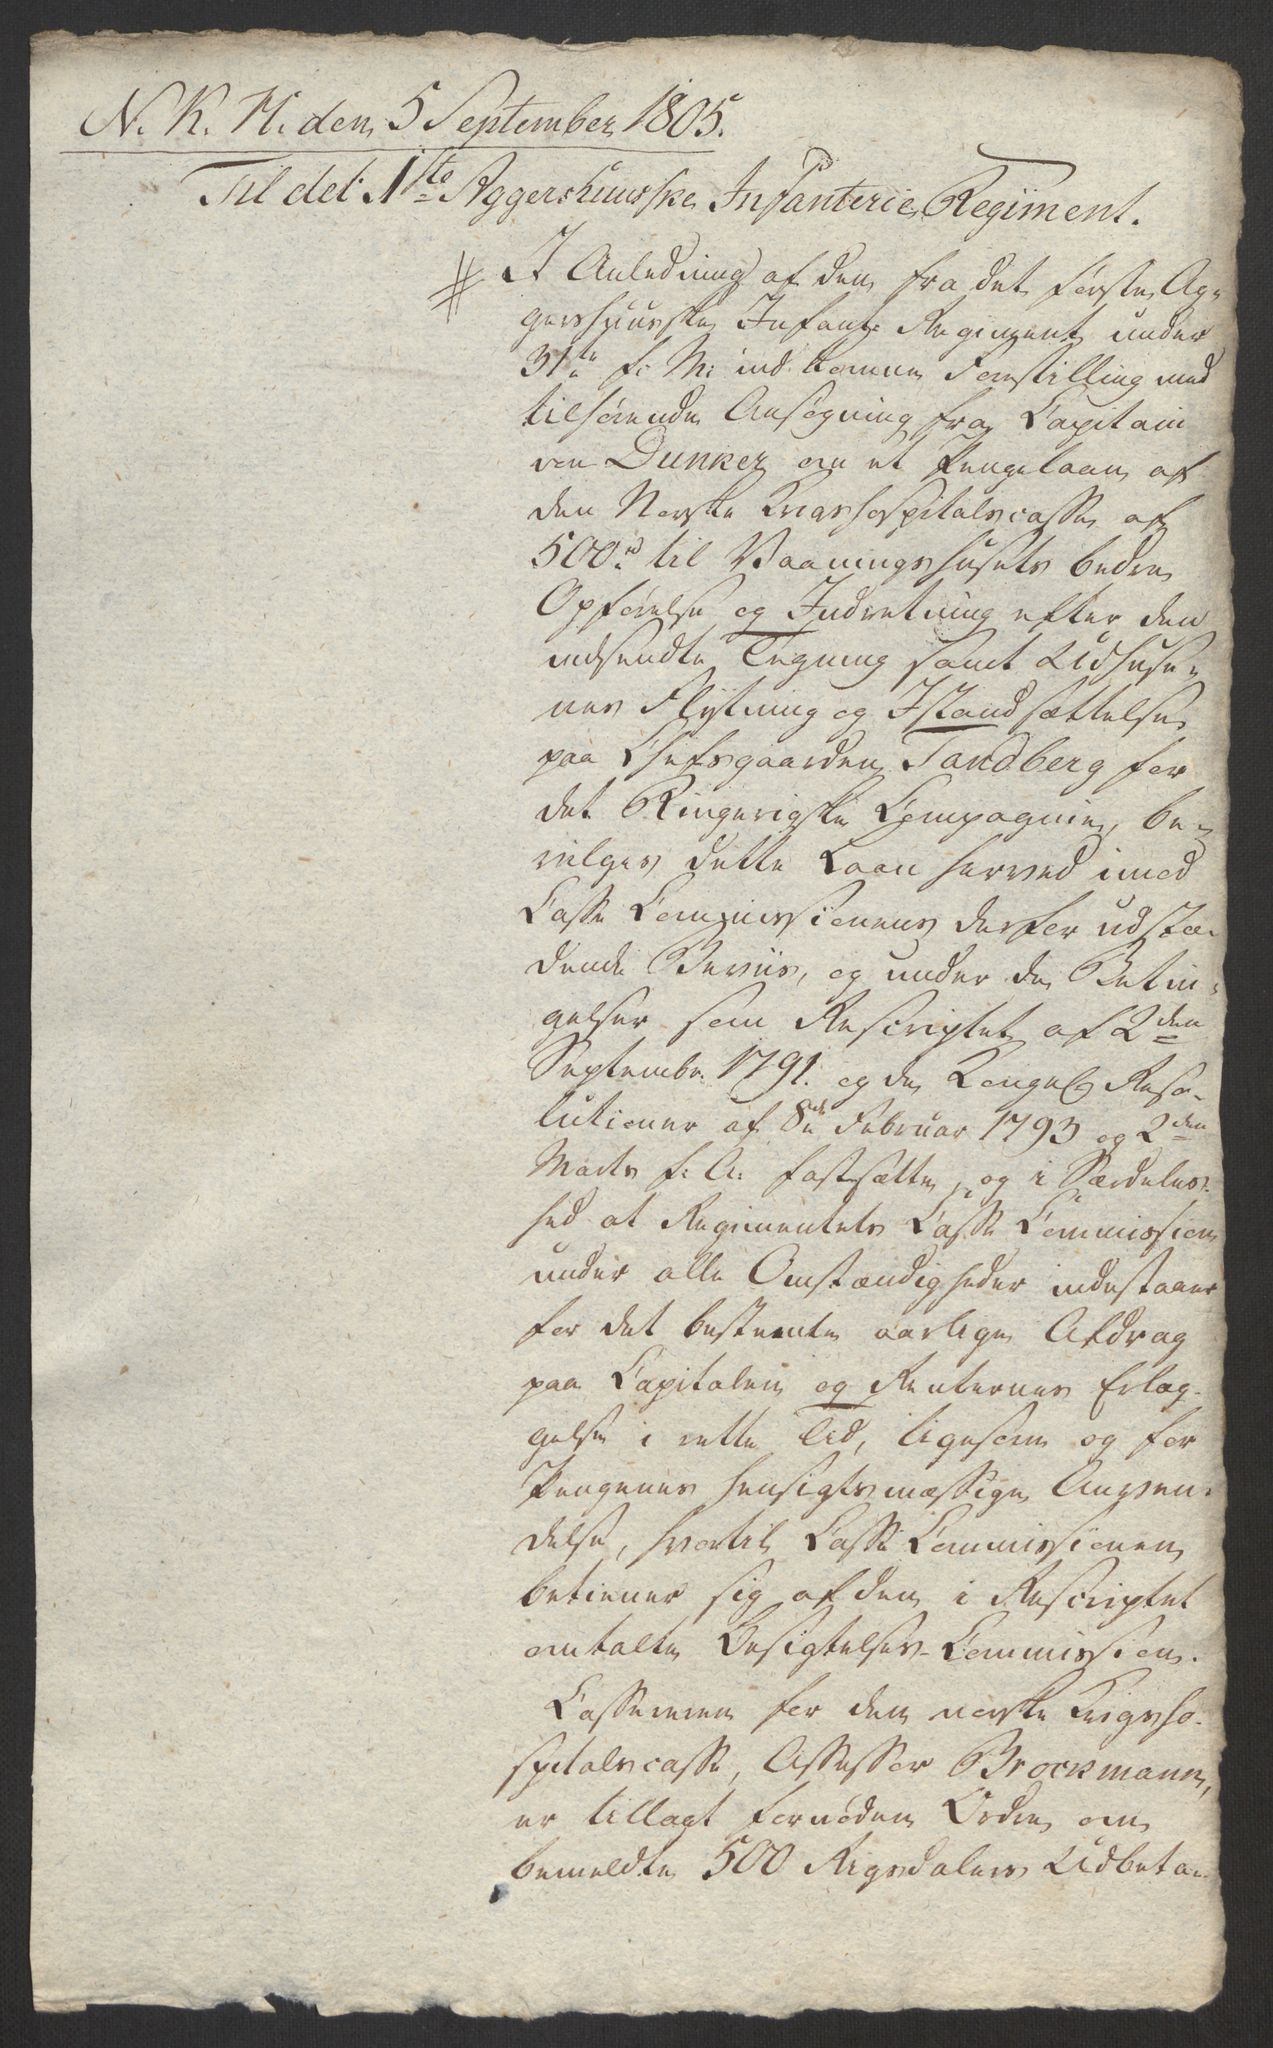 N. K. H. den 5 September 1805.
Til det 1ste Aggershuusske Infanterie Regiment.
I Anledning af den fra det første Ag-
gershuusske Infant: Regiment under
31te f: M: indkomne Forestilling med
tilhørende Ansøgning fra Capitain
von Dunker om et Pengelaan af
den Norske Krigshospitalscasse af
500 rd til Vaaningshusets bedre
Opførelse og Indretning efter den
indsendte Tegning samt Udhuse-
nes Flytning og Istandsættelse
paa Chefsgaarden Tandberg for
det Ringerigske Compagnie, be-
vilges dette Laan herved imod
Casse Commissionens derfor udstæ-
dende Beviis, og under de Betin-
gelser som Rescriptet af 2den
Septembr. 1791. og de Kongel. Reso-
lutioner af 8de Februar 1793 og 2den
Marts f: A: fastsætte, og i Særdeles-
hed at Regimentets Casse Commission
under alle Omstændigheder indestaaer
for det bestemte aarlige Afdrag
paa Capitalen og Renternes Erlæg-
gelse i rette Tid, ligesom og for
Pengenes hensigtsmæssige Anven-
delse, hvortil Casse Commissionen
betiener sig af den i Rescriptet
omtalte Besigtelses-Commission.
Cassereren for den norske Krigsho-
spitalscasse, Assessor Brockmann,
er tillagt fornøden Ordre om
bemeldte 500 Rigsdalers Udbeta-